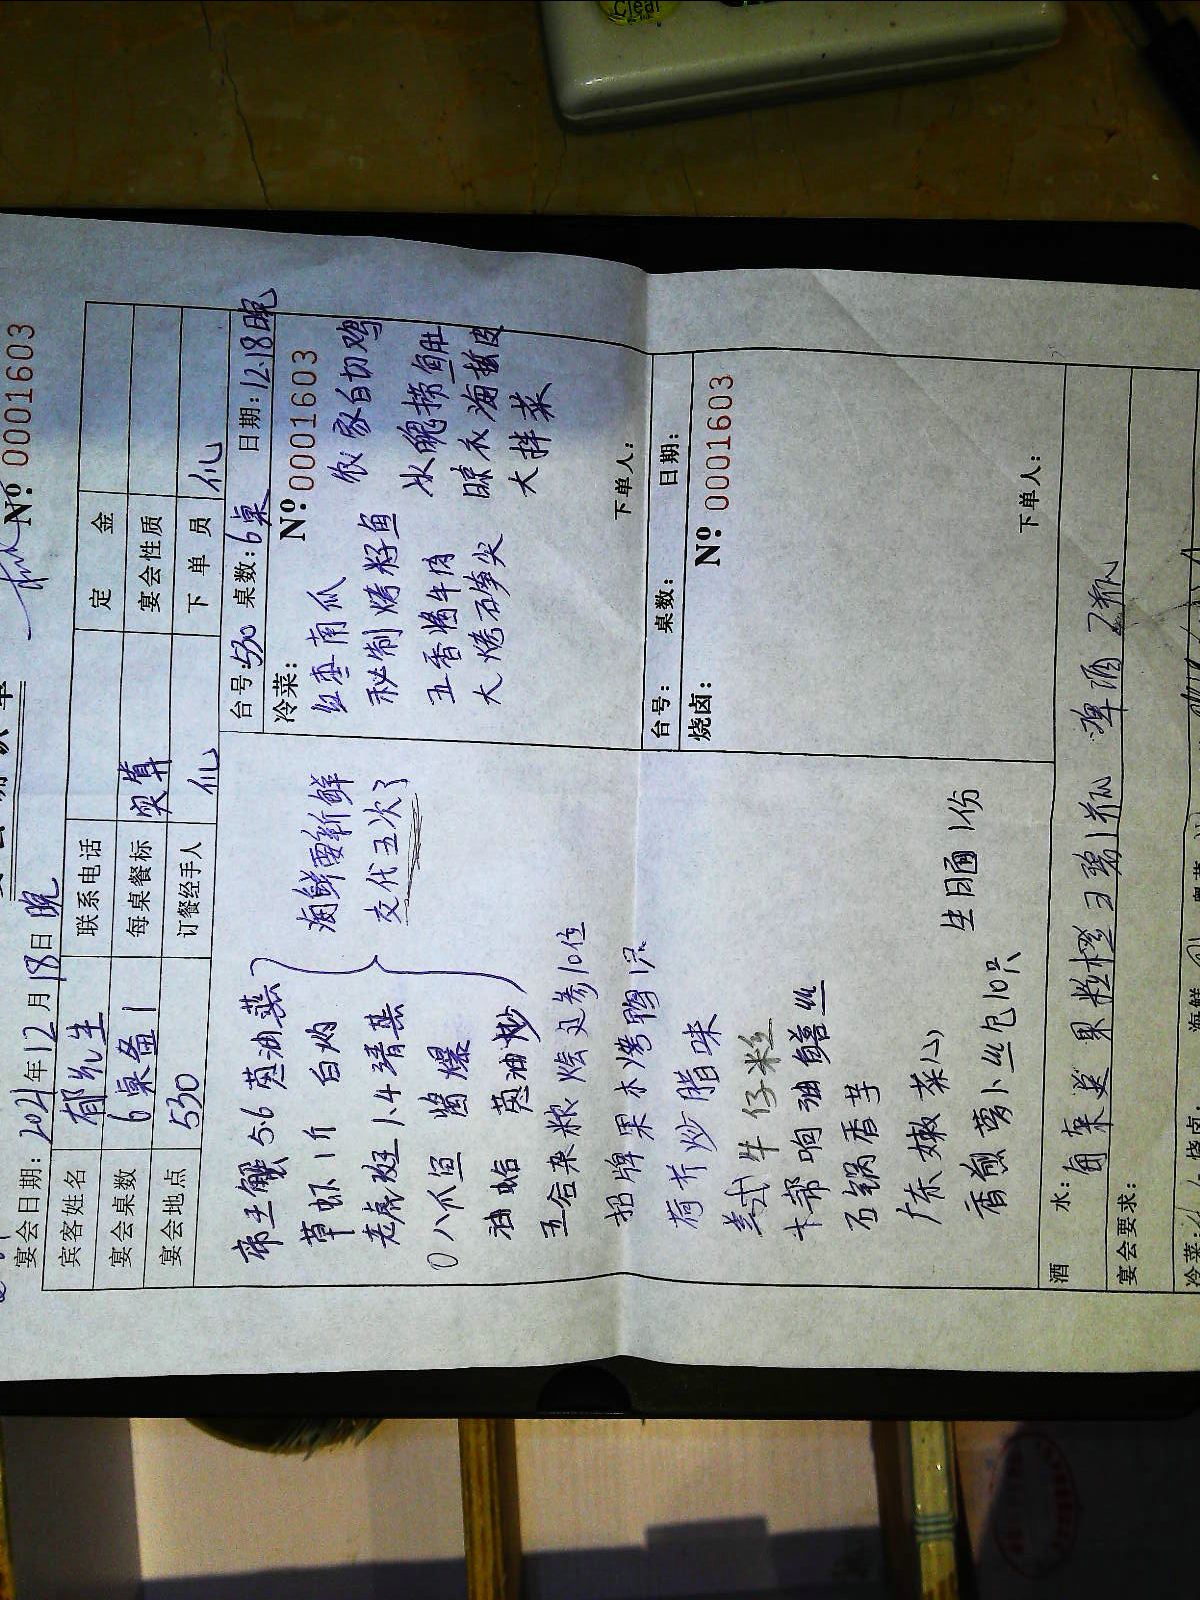 Clear
№ 0001603
宴会日期：2021年12月18日晚
宾客姓名 郁先生 联系电话 定金
宴会桌数 6桌备1 每桌餐标 实算 宴会性质
宴会地点 530 订餐经手人 下单员
帝王蟹5.6 葱油蒸
草虾1斤 白灼
老虎斑1.4 清蒸
八爪鱼 酱爆
油蛤 葱油炒
海鲜要新鲜
交代五次了
五谷杂粮烩辽参10位
招牌果木烤鸭1只
荷芹炒腊味
美式牛仔粒
本帮响油鳝丝
石锅香芋
广东嫩菜心
香煎萝卜丝包10只
生日面1份
台号：530 桌数：6桌 日期：12.18晚
冷菜：
№ 0001603
红枣南瓜 农家白切鸡
秘制烤籽鱼
五香酱牛肉 冰镇捞鱼肚
大烤石笋尖 晾衣海蜇皮
大拌菜
下单人：
台号： 桌数： 日期：
烧卤：
№ 0001603
下单人：
酒水： 果粒橙 1瓶 啤酒 2瓶
宴会要求：
冷菜： 烧卤 海鲜